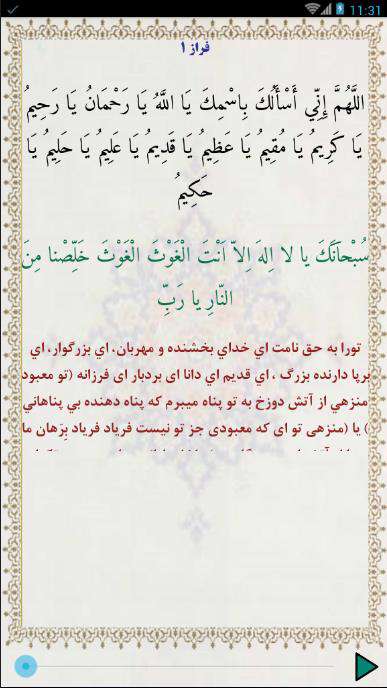 11:31
فراز ۱
اللَّهُمَّ إِنِّي أَسْأَلُكَ بِاسْمِكَ يَا اللَّهُ يَا رَحْمَانُ يَا رَحِيمُ
يَا كَرِيمُ يَا مُقِيمُ يَا عَظِيمُ يَا قَدِيمُ يَا عَلِيمُ يَا حَلِيمُ يَا
حَكِيمُ
سُبْحَانَكَ يا لا اِلهَ اِلاّ اَنْتَ الْغَوْثَ الْغَوْثَ خَلِّصْنا مِنَ
النّارِ يا رَبِّ
تورا به حق نامت اي خدای بخشنده و مهربان، اي بزرگوار، اي
برپا دارنده بزرگ ، اي قديم اي دانا ای بردبار ای فرزانه (تو معبود
منزهي از آتش دوزخ به تو پناه ميبرم كه پناه دهنده بي پناهاني
) يا (منزهی تو ای که معبودی جز تو نیست فریاد فریاد بِرَهان ما